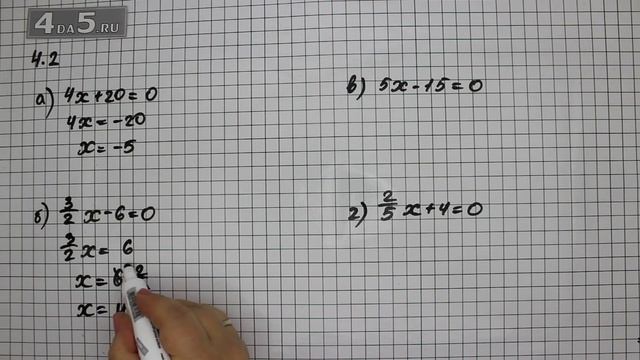 4DA5.RU
4.2
а) 4x+20=0
4x=-20
x=-5
б) 3/2 x-6=0
3/2 x= 6
x=
x=4
в) 5x-15=0
г) 2/5 x+4=0